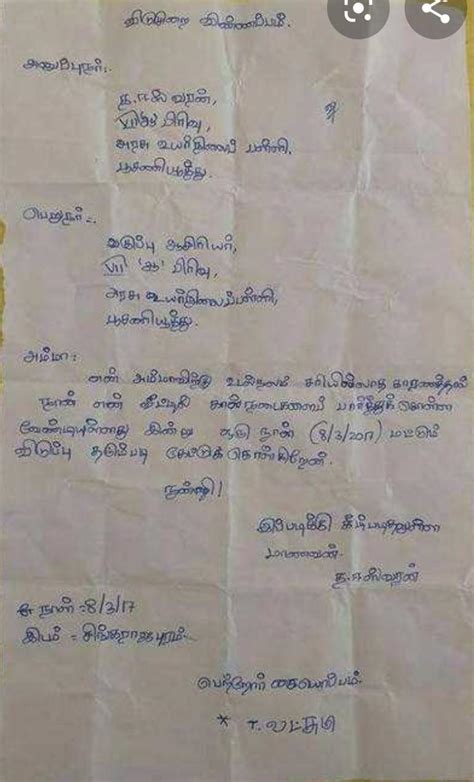 விடுமுறை விண்ணப்பம்.
அனுப்புநர்:-
த.ஈஸ்வரன்,
VII ஆ பிரிவு,
அரசு உயர்நிலைப் பள்ளி,
பூசணியூத்து.
பெறுநர்:-
வகுப்பு ஆசிரியர்,
VII 'ஆ' பிரிவு,
அரசு உயர்நிலைப்பள்ளி,
பூசணியூத்து.
அம்மா:
என் அம்மாவிற்கு உடல்நலம் சரியில்லாத காரணத்தால்
நான் என் வீட்டில் கால்நடைகளைப் பார்த்துக்கொள்ள
வேண்டியுள்ளது இன்று ஒரு நாள் (8/3/2017) மட்டும்
விடுப்பு தரும்படி கேட்டுக்கொள்கிறேன்.
நன்றி!
இப்படிக்கு கீழ்படிதலுள்ள
மாணவன்.
த.ஈஸ்வரன்
நாள் :8/3/17
இடம் = சிங்கராஜபுரம்.
பெற்றோர் கையொப்பம்.
* T. லட்சுமி